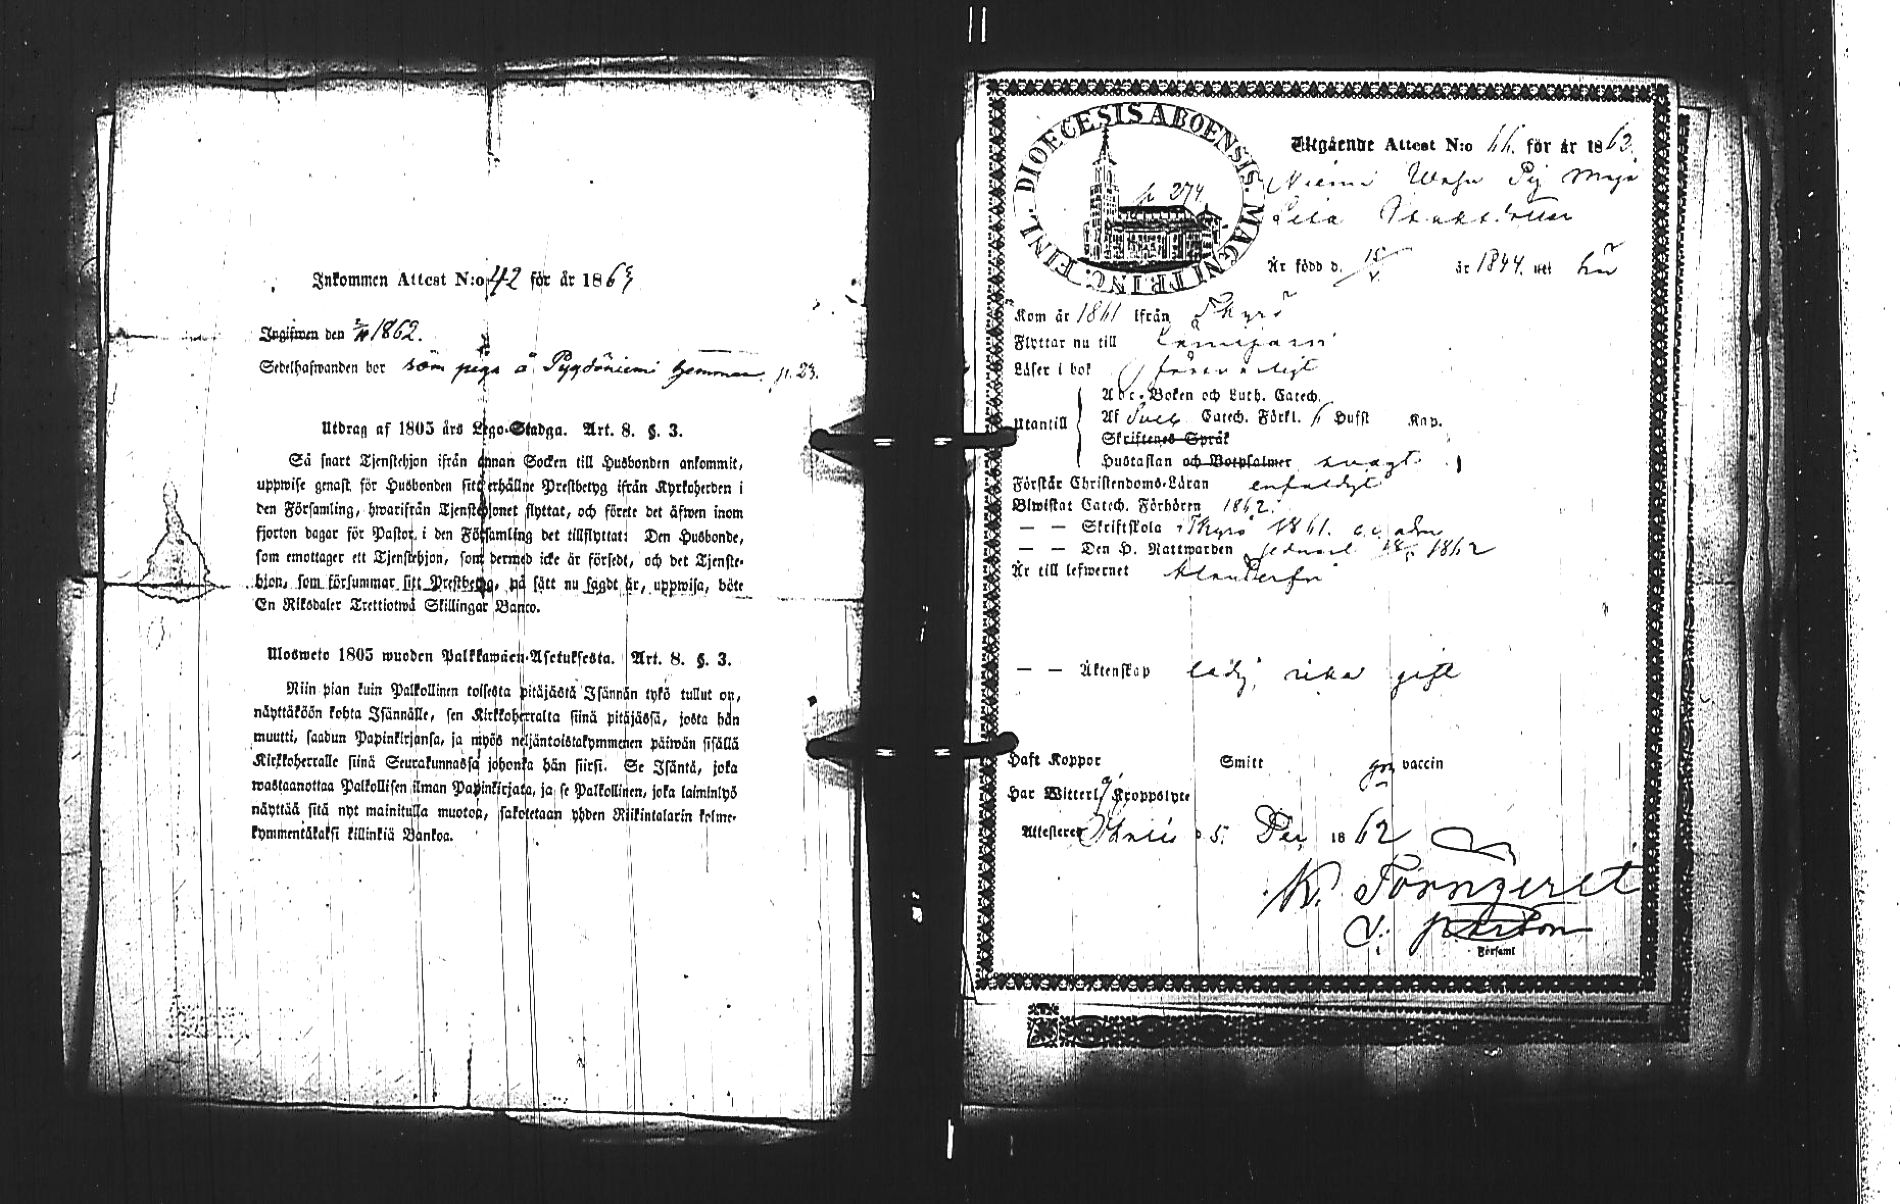 Inkommen Attest N:o 42 för år 1863
Ingifwen den 2/11 1862.
Sedelhafwanden bor som piga å Pyydöniemi hemman. p. 23.
Utdrag af 1805 års Lego-Stadga. Art. 8. §. 3.
Så snart Tjenstehjon ifrån annan Socken till Husbonden ankommit,
uppwise genast för Husbonden sitt erhållne Prestbetyg ifrån Kyrkoherden i
den Församling, hwarifrån Tjenstehjonet flyttat, och förete det äfwen inom
fjorton dagar för Pastor i den Församling det tillflyttat: Den Husbonde,
som emottager ett Tjenstehjon, som dermed icke är försedt, och det Tjenste-
hjon, som försummar sitt Prestbetyg, på sätt nu sagdt är, uppwisa, böte
En Riksdaler Trettiotwå Skillingar Banco.
Ulosweto 1805 wuoden Palkkawäen-Asetuksesta. Art. 8. §. 3.
Niin pian kuin Palkollinen toisesta pitäjästä Isännän tykö tullut on,
näyttäköön kohta Isännälle, sen Kirkkoherralta siinä pitäjässä, josta hän
muutti, saadun Papinkirjansa, ja myös neljäntoistakymmenen päiwän sisällä
Kirkkoherralle siinä Seurakunnassa johonka hän siirsi. Se Isäntä, joka
wastaanottaa Palkollisen ilman Papinkirjata, ja se Palkollinen, joka laiminlyö
näyttää sitä nyt mainitulla muotoa, sakotetaan yhden Riikintalarin kolme-
kymmentäkaksi killinkiä Bankoa.
FINL. DIOECESIS ABOENSIS. MAGNI PRINC.
p 274
Utgående Attest N:o 66. för år 1862.
Niemi Pig Maja
Lisa
Är född d. 15/ år 1844. uti
Kom år 1861 ifrån Thyrö
Flyttar nu till
Läser i bok försvarligt
Utantill
Abc-Boken och Luth. Catech.
Af Sveb Catech. Förkl. 6 Hufst Kap.
Skriftenes Språk
Hustaflan och Botpsalmer svagt
Förstår Christendoms-Läran enfaldigt
Biwistat Catech. Förhören 1862.
— — Skriftskola Thyrö 1861. adm
— — Den H. Nattwarden sednast 1862
Är till lefwernet klanderfri
— — Äktenskap ledig, icke gift
Haft Koppor Smitt vaccin
Har Witterl. Kroppslyte
Attesterar 5. Dec 1862
K. Törnqvist
V. pastor
i Församl